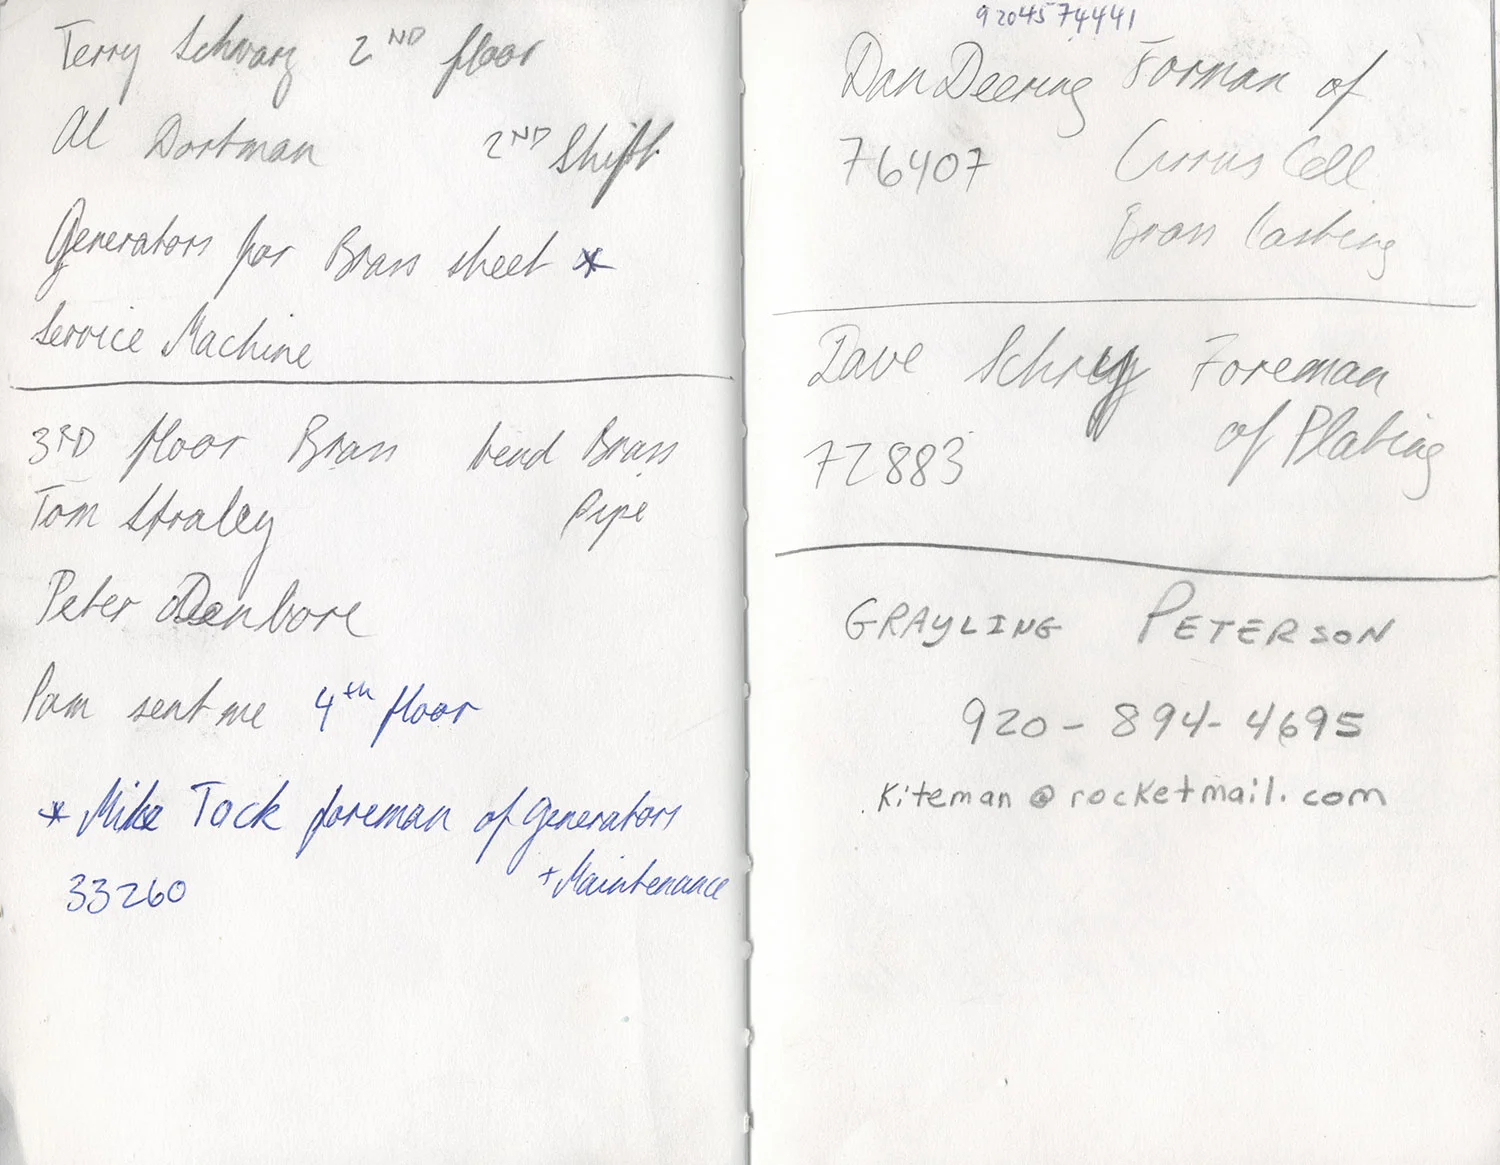 Terry Schwarz 2ND floor
Al Dortman 2ND Shift
Generators for Brass sheet *
Service Machine
3RD floor Brass bend Brass
Tom Straley Pipe
Peter Denbore
Pam sent me 4th floor
* Mike Tack foreman of generators
33260 + Maintenance
9204574441
Dan Deering Forman of
76407 Cirrus Cell
Brass Casting
Dave Foreman
72883 of Plating
GRAYLING PETERSON
920-894-4695
Kiteman@rocketmail.com